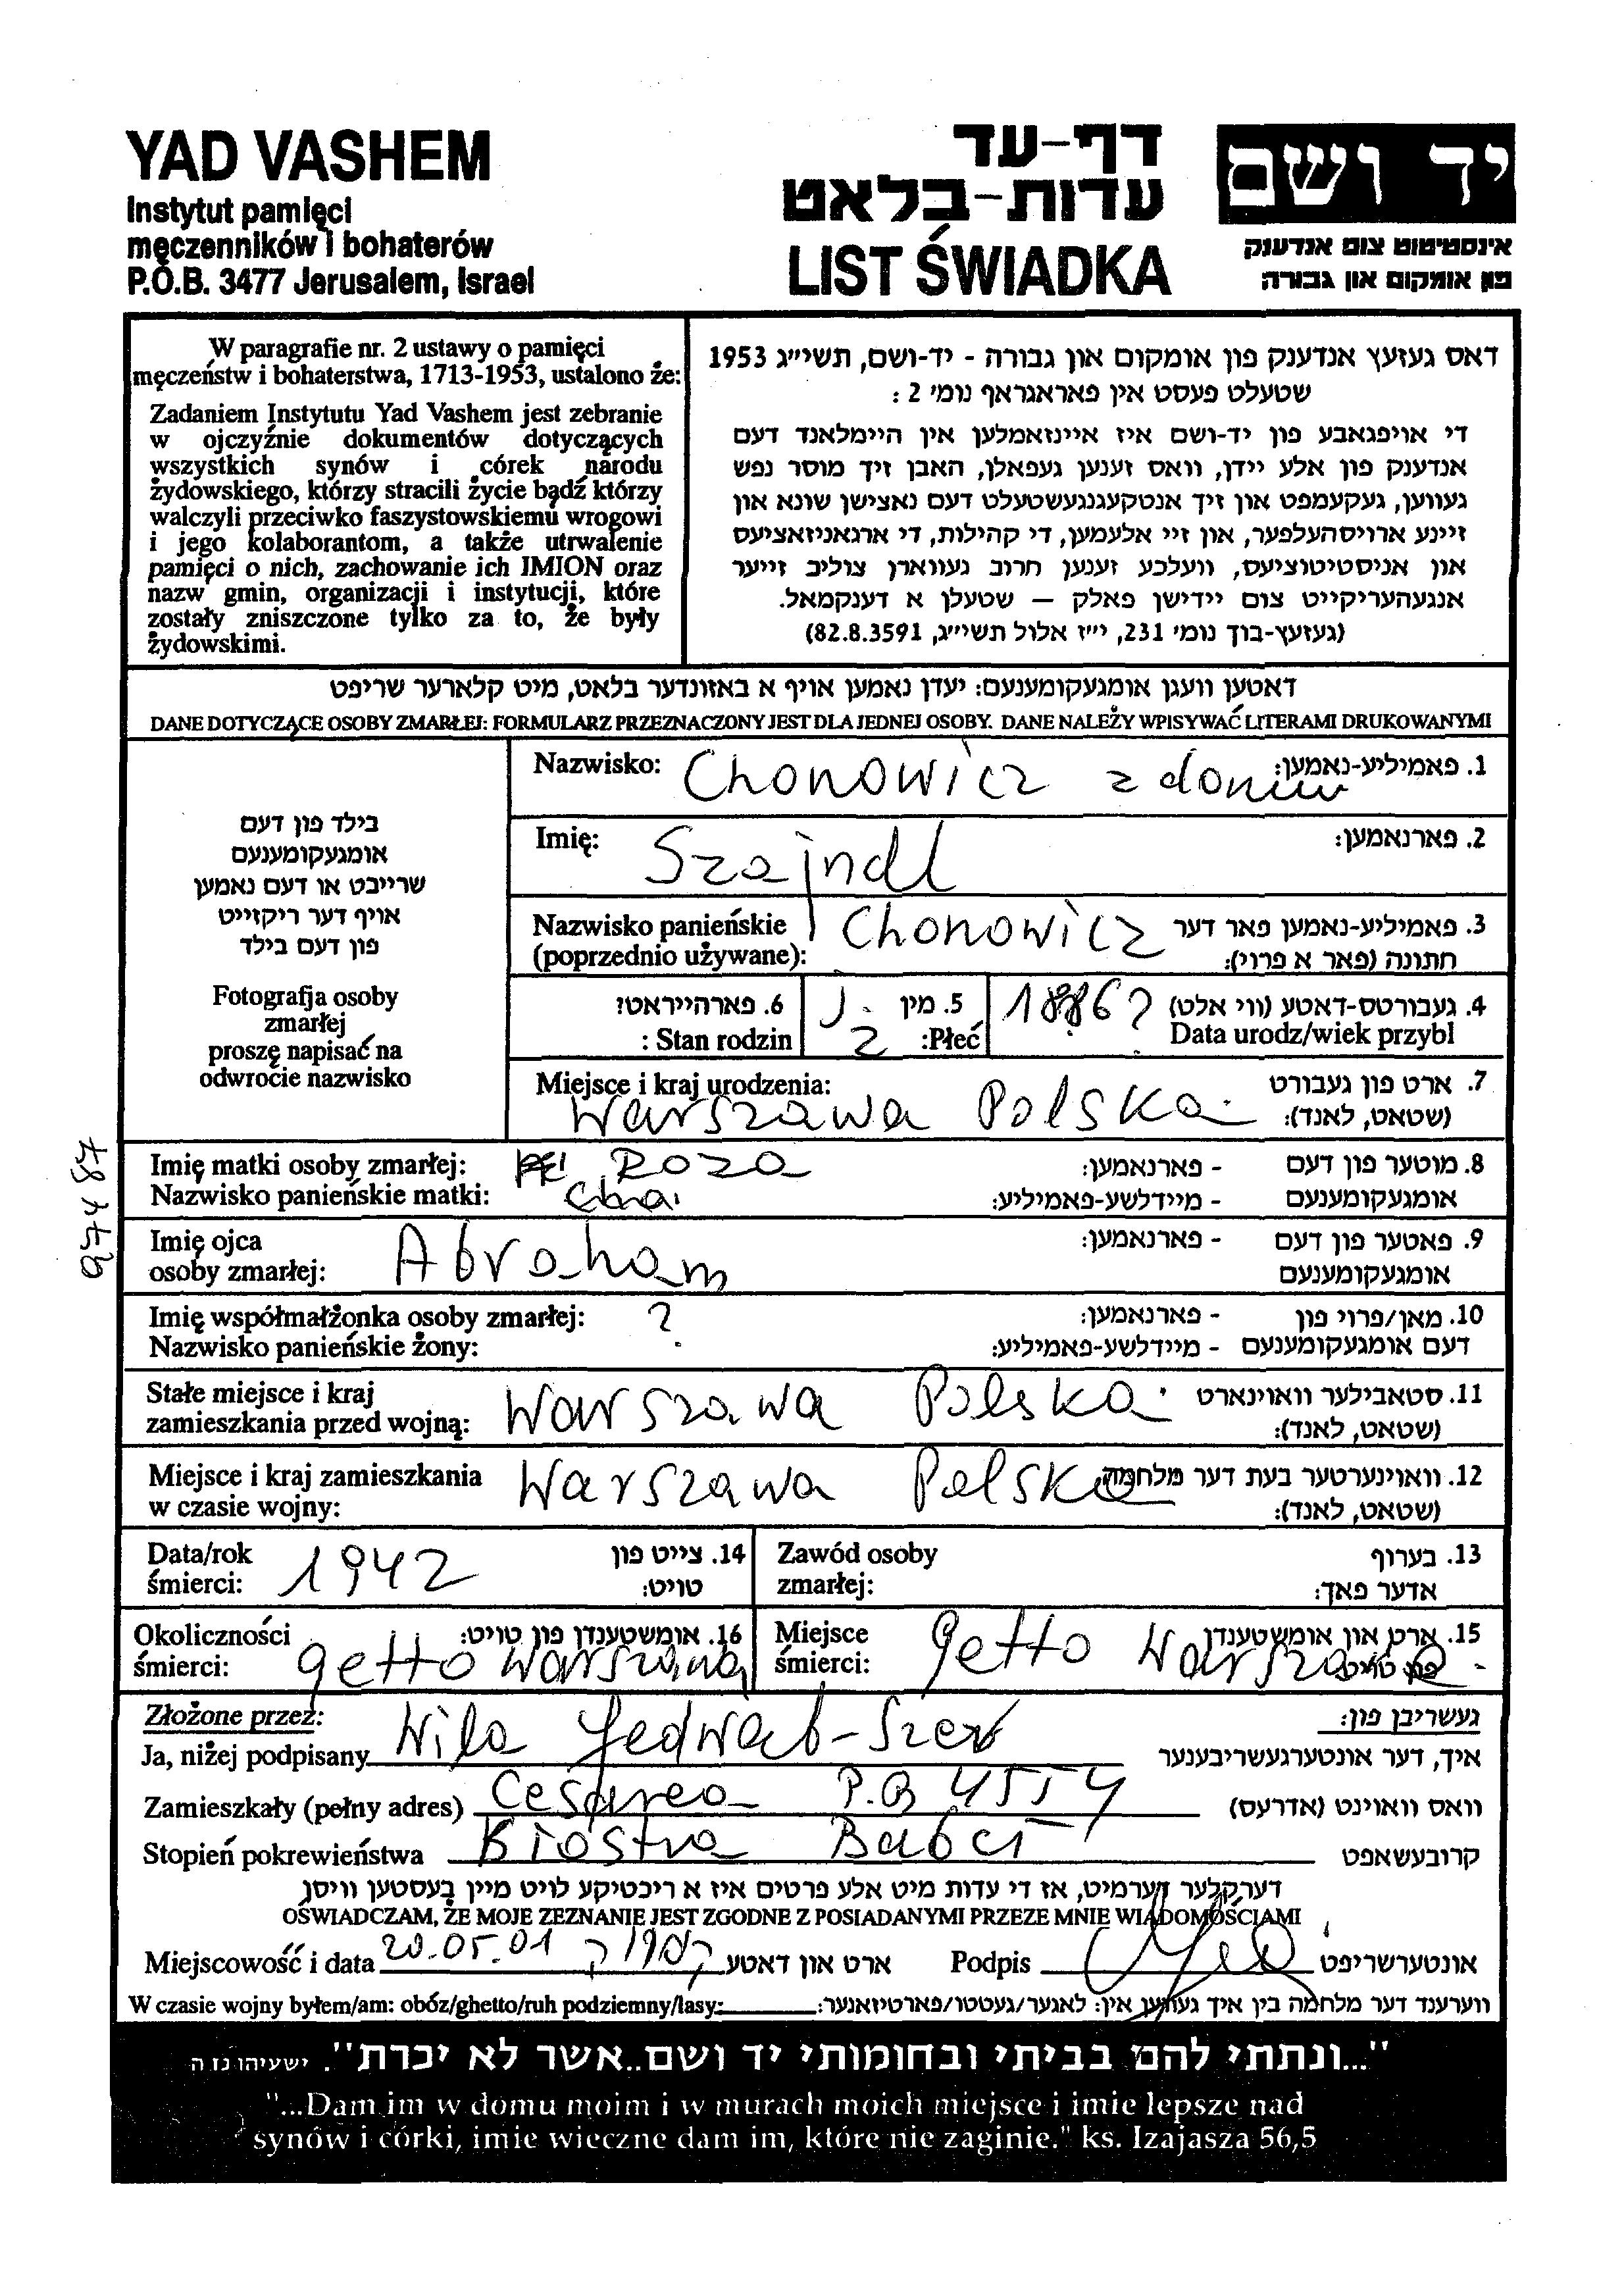 YAD VASHEM
Instytut pamięci
męczenników i bohaterów
P.O.B. 3477 Jerusalem, Israel
דף-עד
עדות-בלאט
LIST ŚWIADKA
יד ושם
אינסטיטוט צום אנדענק
פון אומקום און גבורה
W paragrafie nr. 2 ustawy o pamięci
męczeństw i bohaterstwa, 1713-1953, ustalono że:
Zadaniem Instytutu Yad Vashem jest zebranie
w ojczyźnie dokumentów dotyczących
wszystkich synów i córek narodu
żydowskiego, którzy stracili życie bądź którzy
walczyli przeciwko faszystowskiemu wrogowi
i jego kolaborantom, a także utrwalenie
pamięci o nich, zachowanie ich IMION oraz
nazw gmin, organizacji i instytucji, które
zostały zniszczone tylko za to, że były
żydowskimi.
דאס געזעץ אנדענק פון אומקום און גבורה - יד-ושם, תשי״ג 1953
שטעלט פעסט אין פאראגראף נומ׳ 2 :
די אויפגאבע פון יד-ושם איז איינזאמלען אין היימלאנד דעם
אנדענק פון אלע יידן, וואס זענען געפאלן, האבן זיך מוסר נפש
געווען, געקעמפט און זיך אנטקעגנגעשטעלט דעם נאצישן שונא און
זיינע ארויסהעלפער, און זיי אלעמען, די קהילות, די ארגאניזאציעס
און אניסטיטוציעס, וועלכע זענען חרוב געווארן צוליב זייער
אנגעהעריקייט צום יידישן פאלק – שטעלן א דענקמאל.
(געזעץ-בוך נומ׳ 231, י״ז אלול תשי״ג, 82.8.3591)
דאטען וועגן אומגעקומענעם: יעדן נאמען אויף א באזונדער בלאט, מיט קלארער שריפט
DANE DOTYCZĄCE OSOBY ZMARŁEJ: FORMULARZ PRZEZNACZONY JEST DLA JEDNEJ OSOBY. DANE NALEŻY WPISYWAĆ LITERAMI DRUKOWANYMI
בילד פון דעם
אומגעקומענעם
שרייבט או דעם נאמען
אויף דער ריקזייט
פון דעם בילד
Fotografja osoby
zmarłej
proszę napisać na
odwrocie nazwisko
Nazwisko: Chonowicz z domu 1. פאמיליע-נאמען:
Imię: Szajndl 2. פארנאמען:
Nazwisko panieńskie Chonowicz 3. פאמיליע-נאמען פאר דער
(poprzednio używane): חתונה (פאר א פרוי):
6. פארהייראט? 5. מין 1886? 4. געבורטס-דאטע (ווי אלט)
Stan rodzin : Płeć: Data urodz/wiek przybl
Miejsce i kraj urodzenia: 7. ארט פון געבורט
Warszawa Polska (שטאט, לאנד):
Imię matki osoby zmarłej: Roza - פארנאמען: 8. מוטער פון דעם
Nazwisko panieńskie matki: - מיידלשע-פאמיליע: אומגעקומענעם
Imię ojca Abraham - פארנאמען: 9. פאטער פון דעם
osoby zmarłej: אומגעקומענעם
Imię współmałżonka osoby zmarłej: ? - פארנאמען: 10. מאן/פרוי פון
Nazwisko panieńskie żony: - מיידלשע-פאמיליע: דעם אומגעקומענעם
Stałe miejsce i kraj Warszawa Polska 11. סטאבילער וואוינארט
zamieszkania przed wojną: (שטאט, לאנד):
Miejsce i kraj zamieszkania Warszawa Polska 12. וואוינערטער בעת דער מלחמה
w czasie wojny: (שטאט, לאנד):
Data/rok 1942 14. צייט פון Zawód osoby 13. בערוף
śmierci: טויט: zmarłej: אדער פאך:
Okoliczności 16. אומשטענדן פון טויט: Miejsce 15. ארט און אומשטענדן
śmierci: getto Warszawa śmierci: getto Warszawa פון טויט
Złożone przez: געשריבן פון:
Ja, niżej podpisany Wila Jedwab-Szer איך, דער אונטערגעשריבענער
Zamieszkały (pełny adres) Cesarea P.B 4554 וואס וואוינט (אדרעס)
Stopień pokrewieństwa Siostra Babci קרובעשאפט
דערקלער דערמיט, אז די עדות מיט אלע פרטים איז א ריכטיקע לויט מיין בעסטען וויסן
OŚWIADCZAM, ŻE MOJE ZEZNANIE JEST ZGODNE Z POSIADANYMI PRZEZE MNIE WIADOMOŚCIAMI
Miejscowość i data 20.05.01 ארט און דאטע Podpis אונטערשריפט
W czasie wojny byłem/am: obóz/ghetto/ruh podziemny/lasy: ווערענד דער מלחמה בין איך געווען אין: לאגער/געטטו/פארטיזאנער:
"...ונתתי להם בביתי ובחומותי יד ושם..אשר לא יכרת". ישעיהו נו ה
"...Dam im w domu moim i w murach moich miejsce i imie lepsze nad
synów i córki, imie wieczne dam im, które nie zaginie." ks. Izajasza 56,5